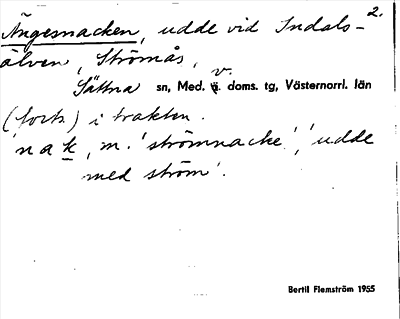 2.
Ängesnacken, udde vid Indals-
älven, Strömås,
Sättna sn, Med. v. doms. tg, Västernorrl. län
(forts.) i trakten.
nak, m. 'strömnacke', 'udde
med ström'.
Bertil Flemström 1955